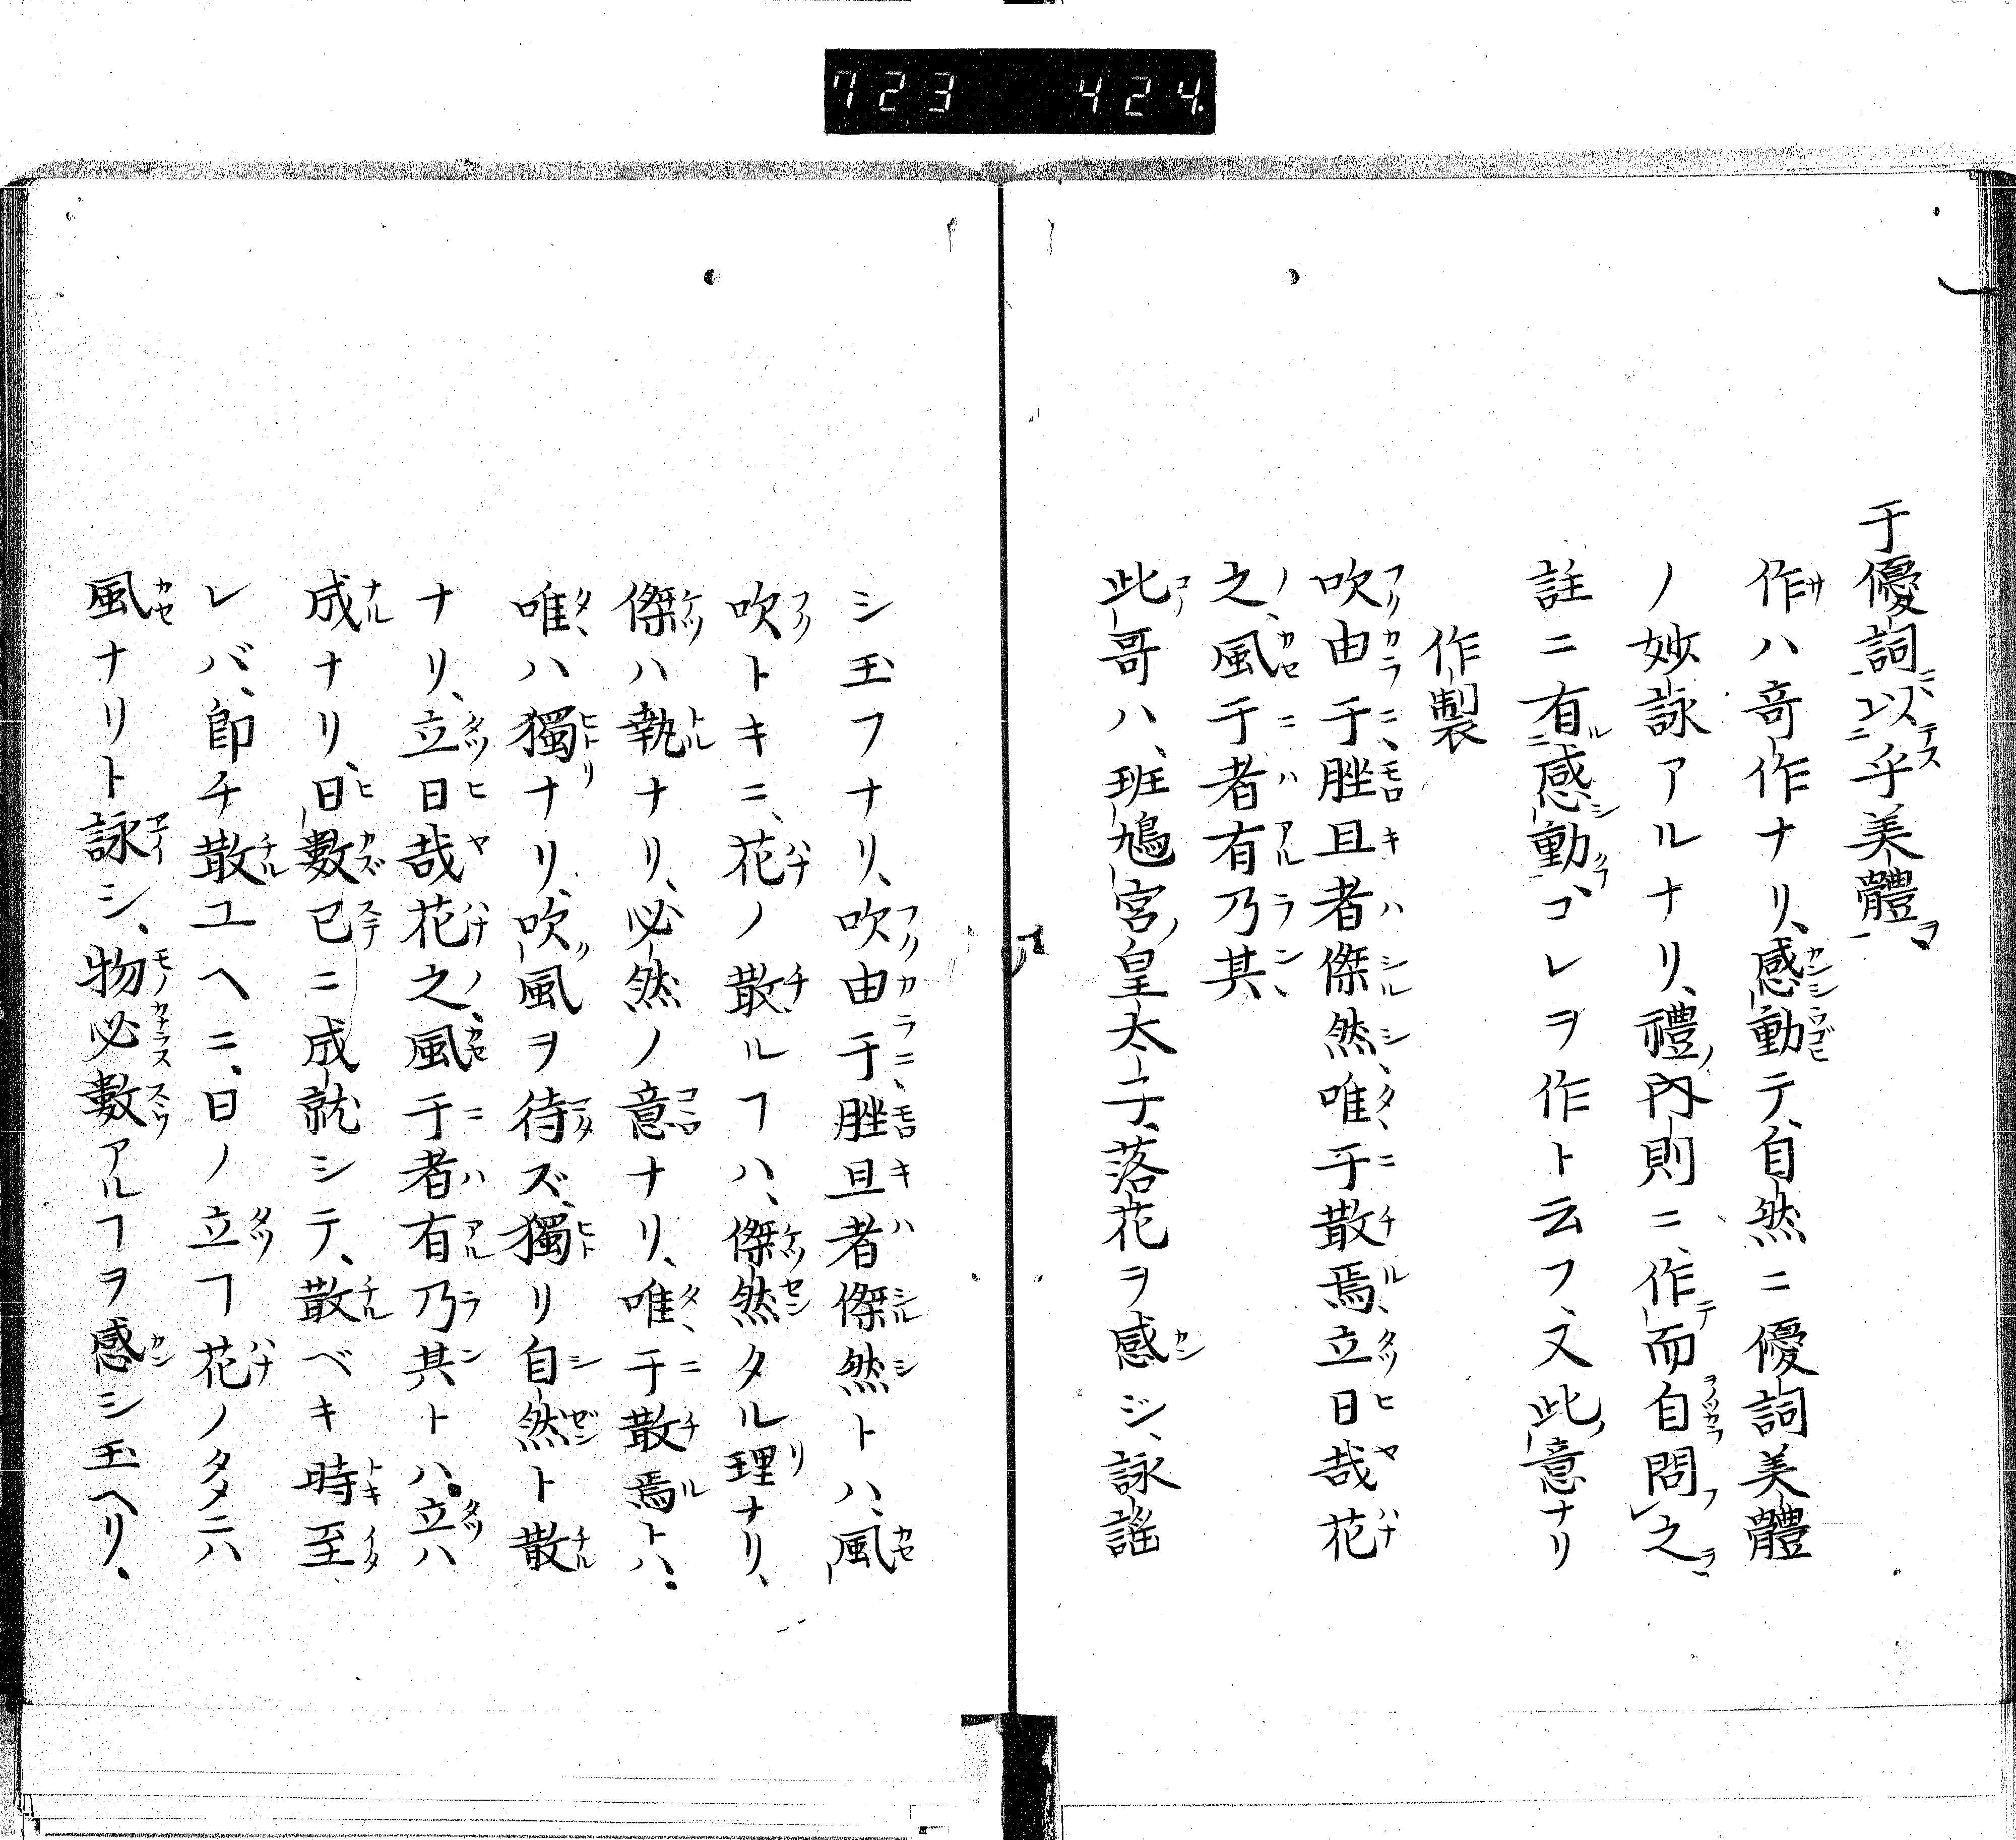 723 424
于優詞以乎美體
作ハ奇作ナリ、感動テ、自然ニ優詞美體
ノ妙詠アルナリ、禮內則ニ、作而自問之
註ニ有感動コレヲ作ト云フ、又此意ナリ
作製
吹由于、脞且者傑然、唯于散焉、立日哉花
之、風于者有乃其、
此哥ハ、班鳩宮皇太子、落花ヲ感ジ、詠謠
シ玉フナリ、吹由于、脞且者傑然トハ、風
吹トキニ、花ノ散ルヿハ、傑然タル理ナリ、
傑ハ執ナリ、必然ノ意ナリ、唯于散焉トハ、
唯ハ獨ナリ、吹風ヲ待ズ、獨リ自然ト散
ナリ、立日哉花之、風于者有乃其トハ、立ハ
成ナリ、日數已ニ成就シテ、散ベキ時至
レバ、卽チ散ユヘニ、日ノ立ヿ花ノタメニハ
風ナリト詠シ、物必數アルヿヲ感シ玉ヘリ、